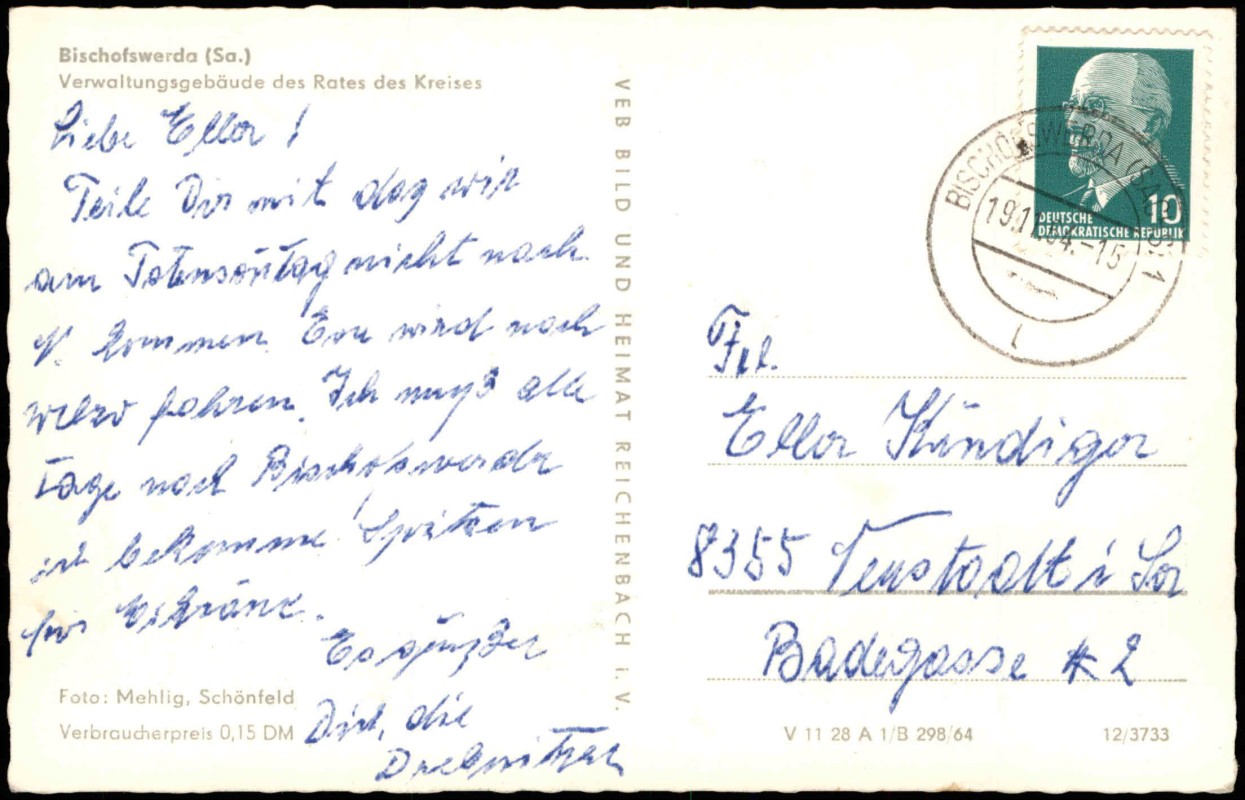 Bischofswerda (Sa.)
Verwaltungsgebäude des Rates des Kreises
Liebe Ella!
Teile Dir mit das wir
am Totensontag nicht nach
N. kommen. Eva wird nach
fahren. Ich muß alle
Tage nach Bischofswerda
ich bekomme Spritzen
für
Es grüßet
Dich, die
Foto: Mehlig, Schönfeld
Verbraucherpreis 0,15 DM
VEB BILD UND HEIMAT REICHENBACH i. V.
10
DEUTSCHE
DEMOKRATISCHE REPUBLIK
BISCHOFSWERDA (SACHS) 1
-15
Frl.
Ella Kündiger
8355 Neustadt i Sa
Badegasse # 2
V 11 28 A 1/B 298/64
12/3733